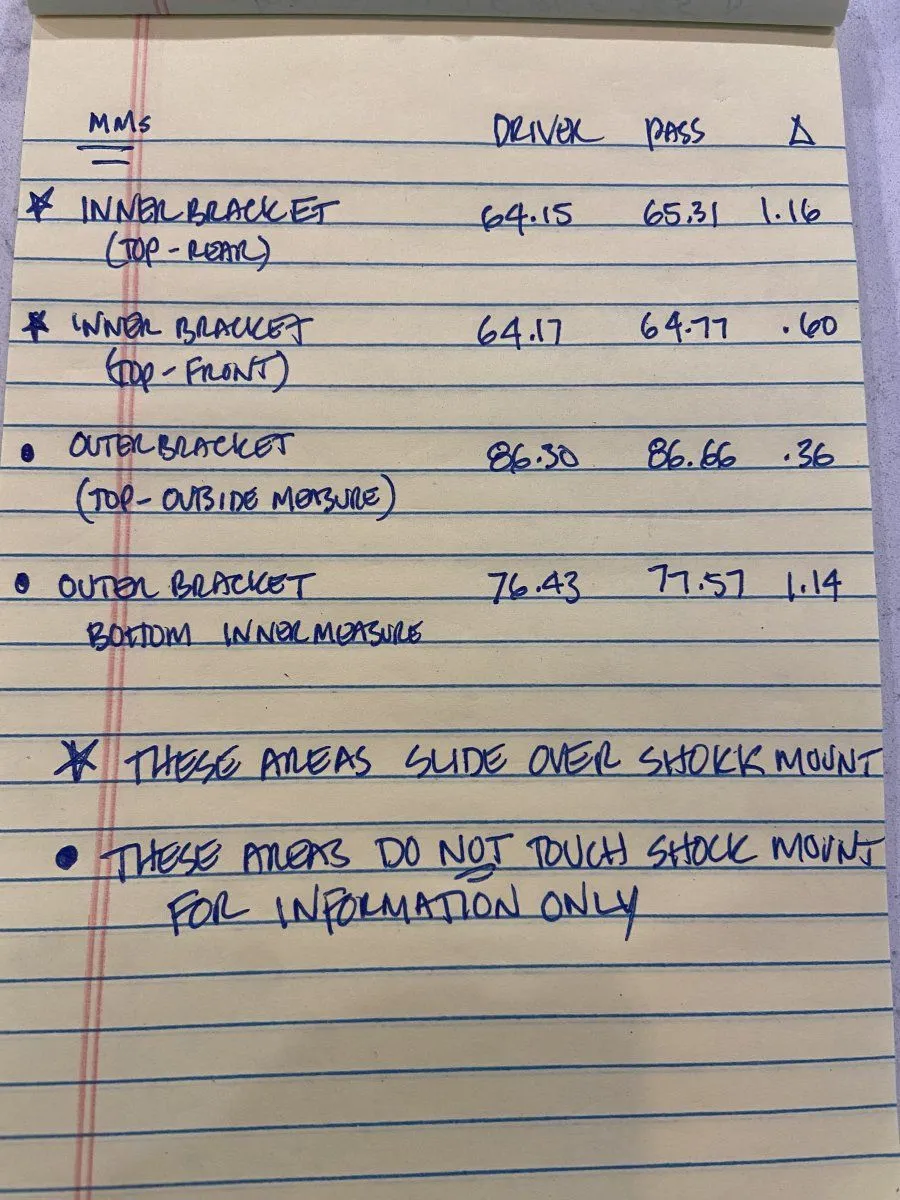 MMs DRIVER PASS Δ
☆ INNER BRACKET 64.15 65.31 1.16
(TOP-REAR)
☆ INNER BRACKET 64.17 64.77 .60
(TOP-FRONT)
• OUTER BRACKET 86.30 86.66 .36
(TOP-OUTSIDE MEASURE)
• OUTER BRACKET 76.43 77.57 1.14
BOTTOM INNER MEASURE
☆ THESE AREAS SLIDE OVER SHOKK MOUNT
• THESE AREAS DO NOT TOUCH SHOCK MOUNT
FOR INFORMATION ONLY